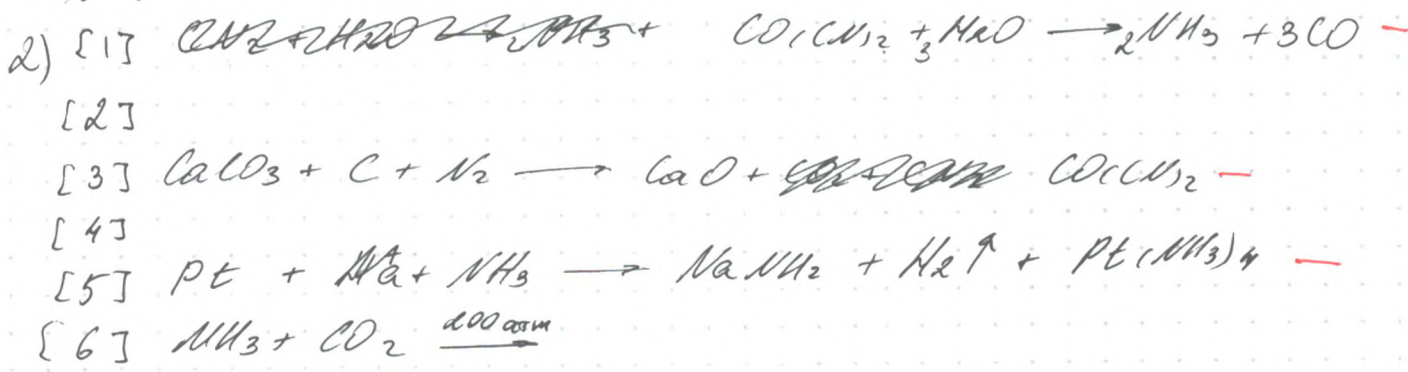 2) [1] CO(CN)2 + 3H2O → 2NH3 + 3CO –
[2]
[3] CaCO3 + C + N2 → CaO + CO(CN)2 –
[4]
[5] Pt + Na + NH3 → NaNH2 + H2↑ + Pt(NH3)4 –
[6] NH3 + CO2 200 атм →